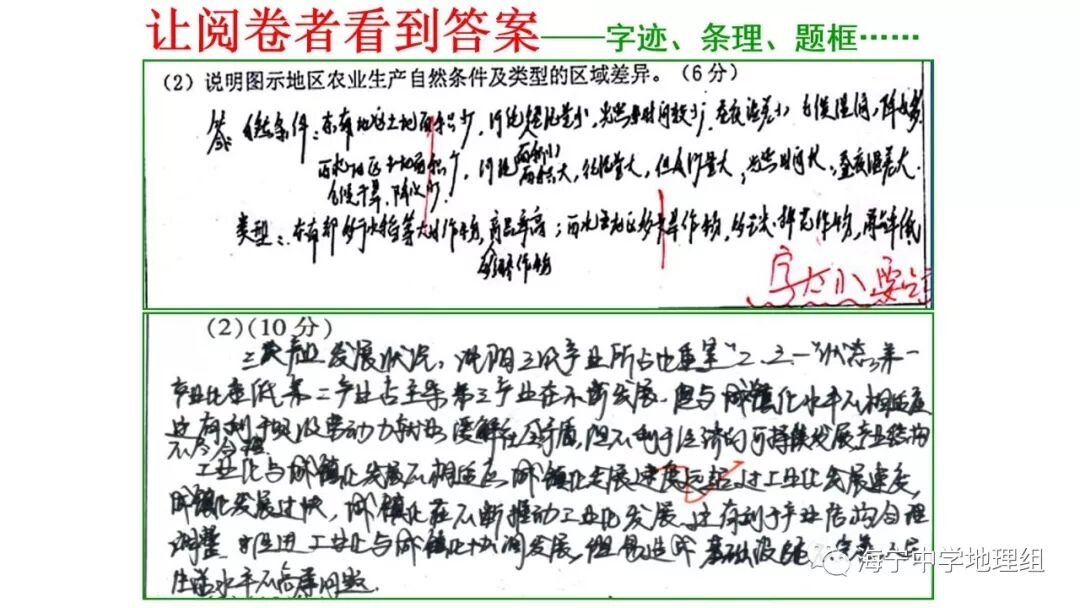 让阅卷者看到答案——字迹、条理、题框……
(2) 说明图示地区农业生产自然条件及类型的区域差异。(6分)
答: 自然条件: 东南地区土地面积少, 河流径流量小, 光照时间较少, 昼夜温差小 气候湿润, 降水多
西北地区土地面积 河流 流量大, 但 量大, 光照时间长, 昼夜温差大.
气候干旱, 降水少.
类型: 东南部 水稻等 作物, 商品率高; 西北 作物, 作物, 商品率低
作物
字大小要
(2)(10分)
三次产业发展状况, 说明三次产业所占比重呈"二.三.一"状态, 第一
产业比重低 第二产业占主导 第三产业在不断发展. 但与城镇化水平不相适应
这有利于吸收劳动力就业, 缓解社会矛盾, 但不利于经济的可持续发展, 产业结构
不尽合理
工业化与城镇化发展不相适应, 城镇化发展速度远超过工业化发展速度,
城镇化发展过快, 城镇化在不断推动工业化发展, 这有利于产业结构合理
调整 推进工业化与城镇化协调发展, 但易造成基础设施
水平不高等问题.
海宁中学地理组